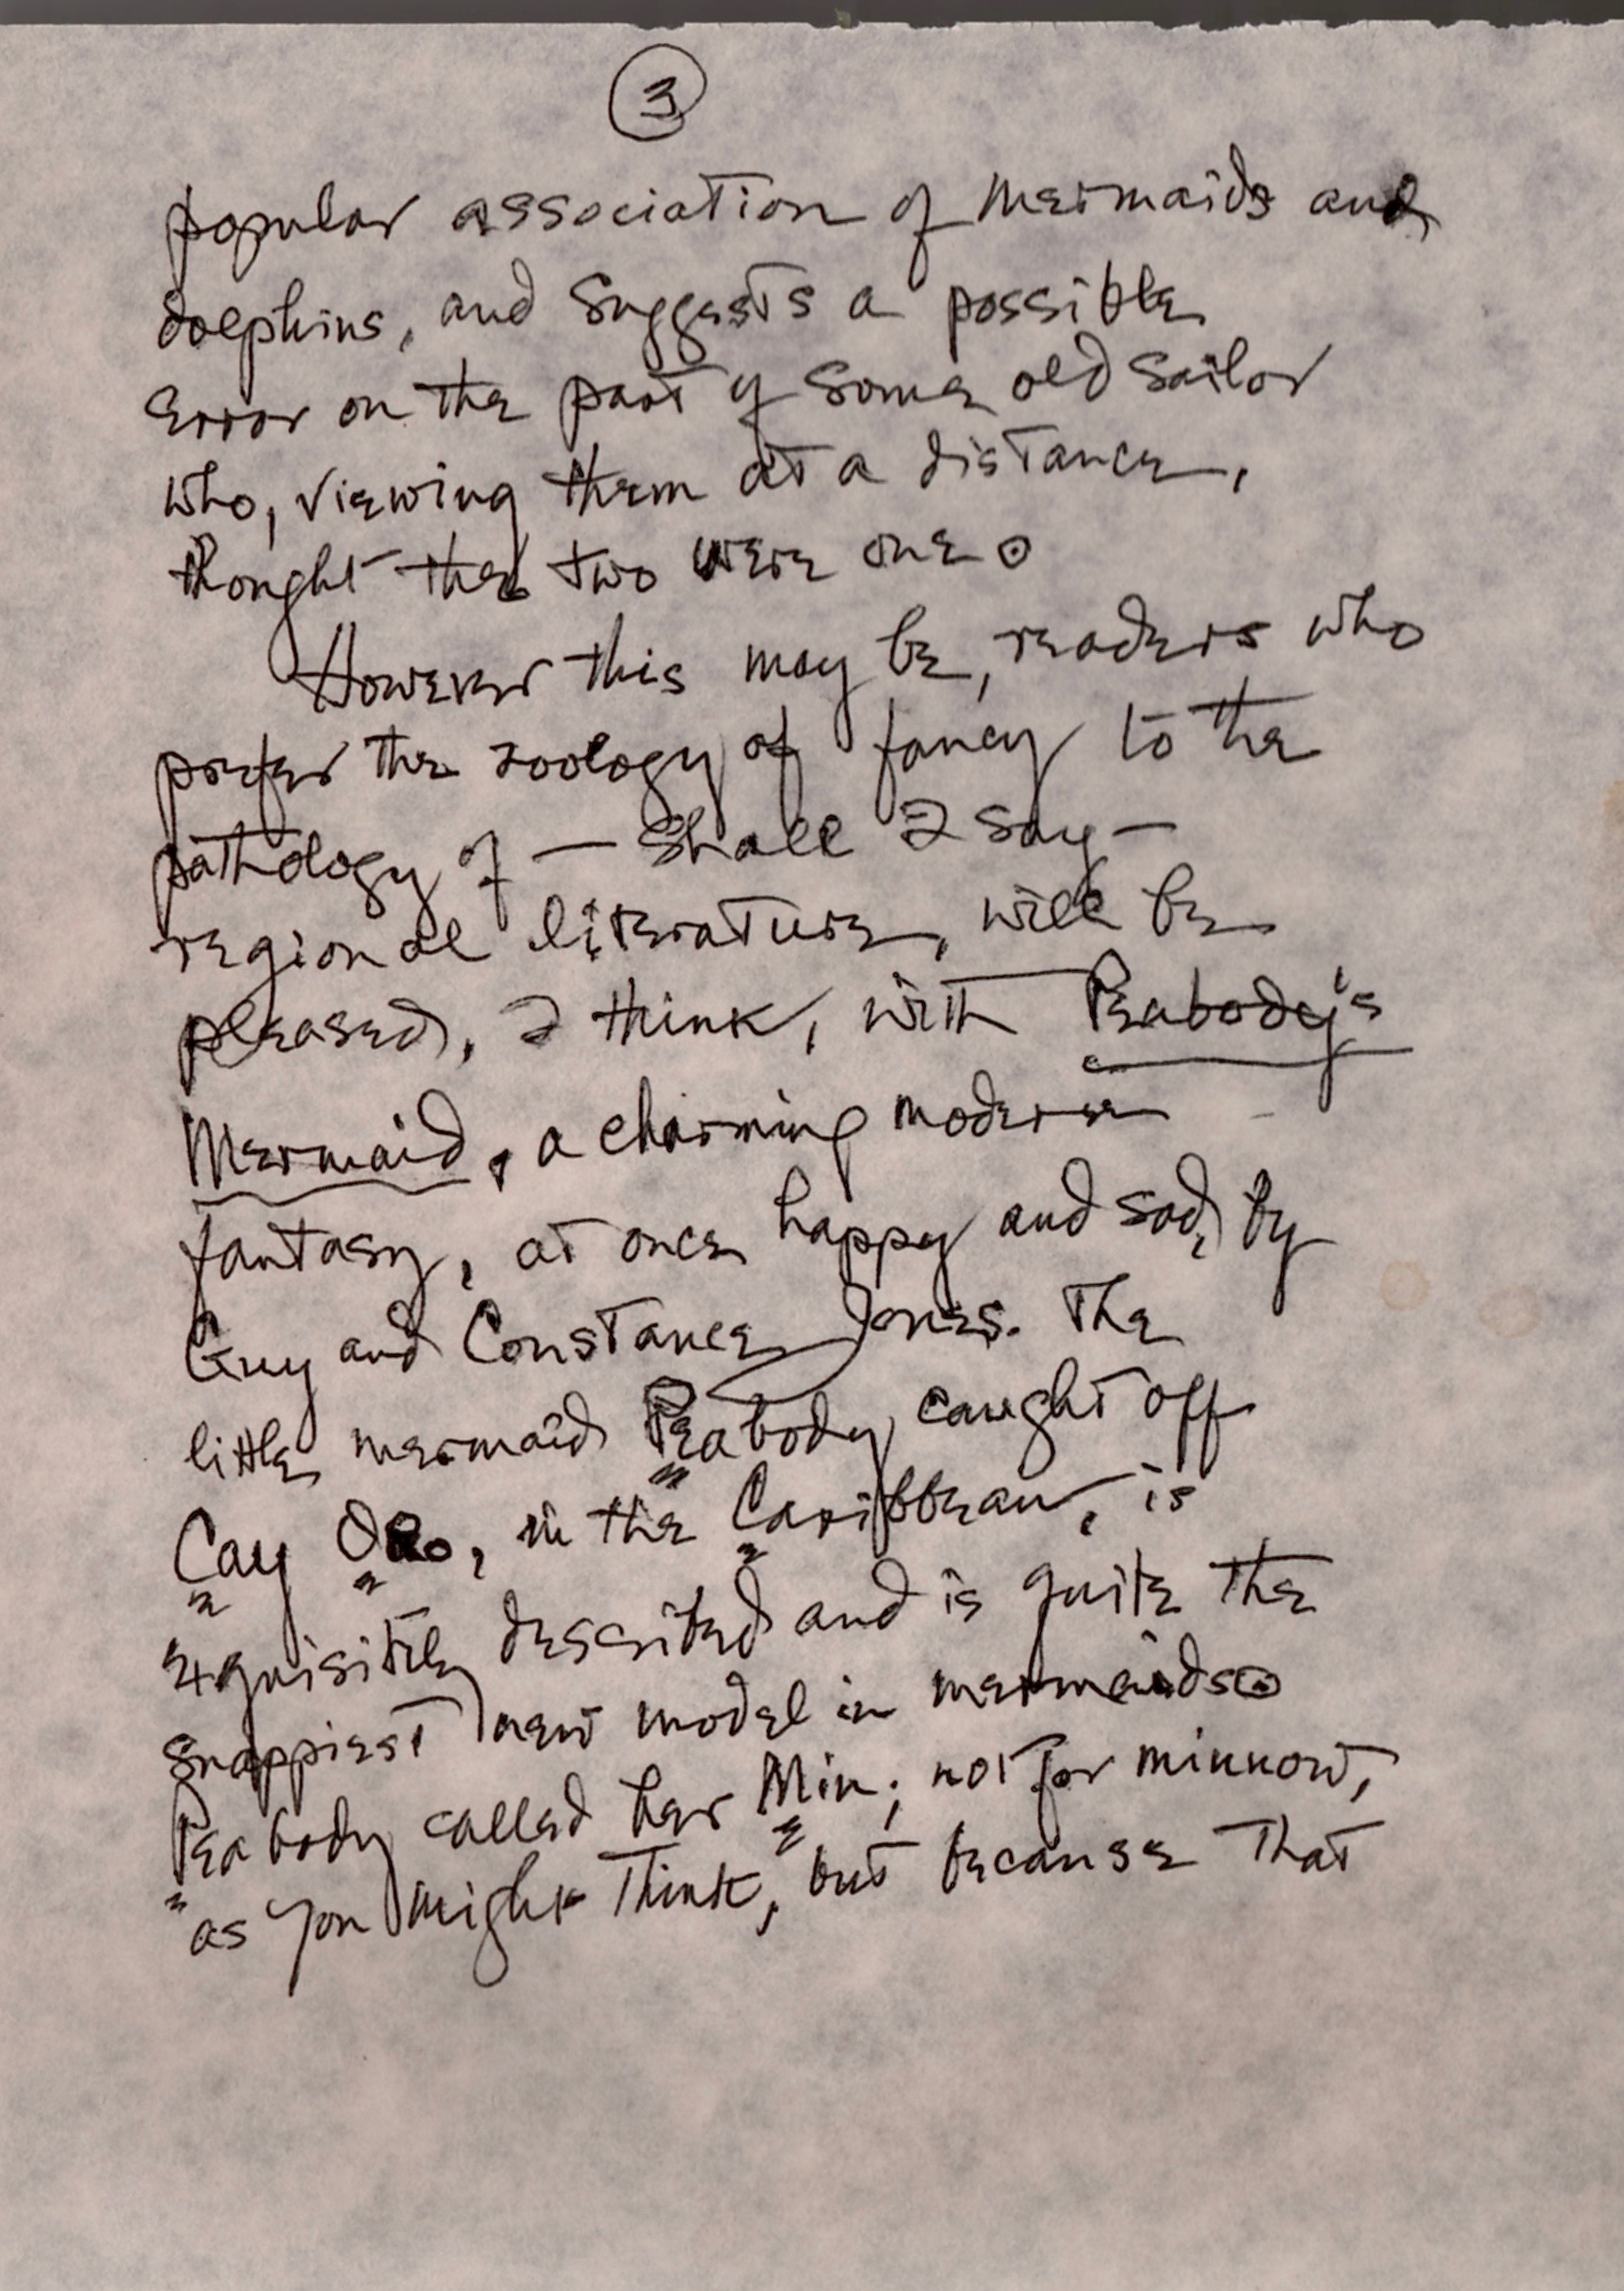 3
popular association of mermaids and
dolphins, and suggests a possible
error on the part of some old sailor
who, viewing them at a distance,
thought the two were one.
However this may be, readers who
prefer the zoology of fancy to the
pathology of — shall I say —
regional literature, will be
pleased, I think, with Peabody's
Mermaid, a charming modern
fantasy, at once happy and sad, by
Guy and Constance Jones. The
little mermaid Peabody caught off
Cay Oro, in the Caribbean, is
exquisitely described and is quite the
snappiest new model in mermaids.
Peabody called her Min; not for minnow,
as you might think, but because that